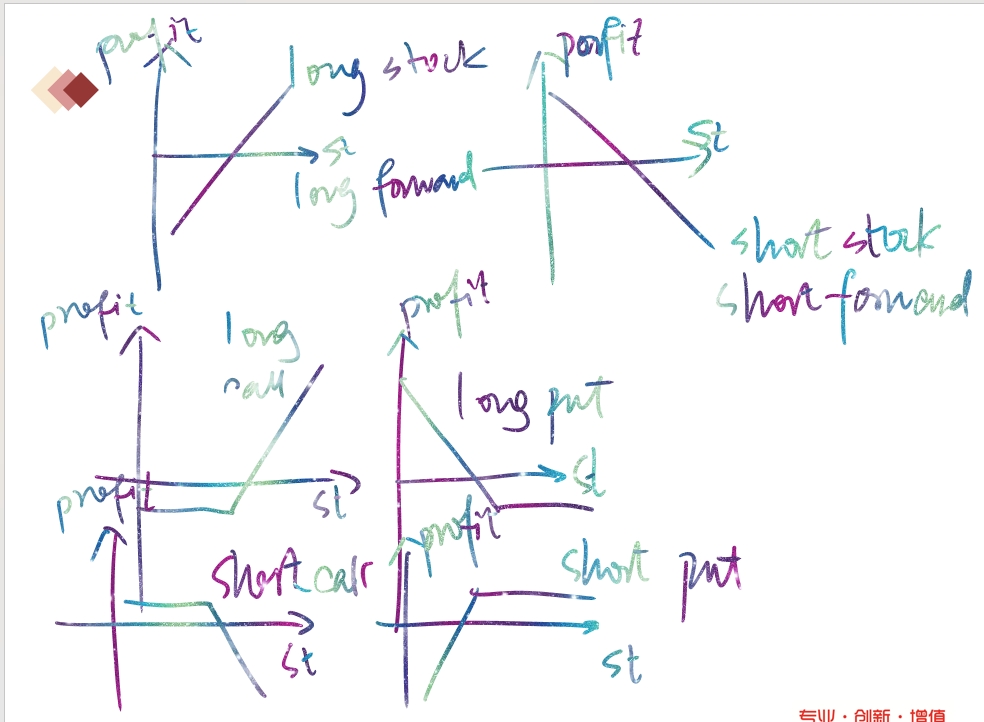 profit
long stock
st
long forward
porfit
St
short stock
short forward
profit
long
call
st
profit
long put
st
profit
short call
st
profit
short put
st
专业·创新·增值